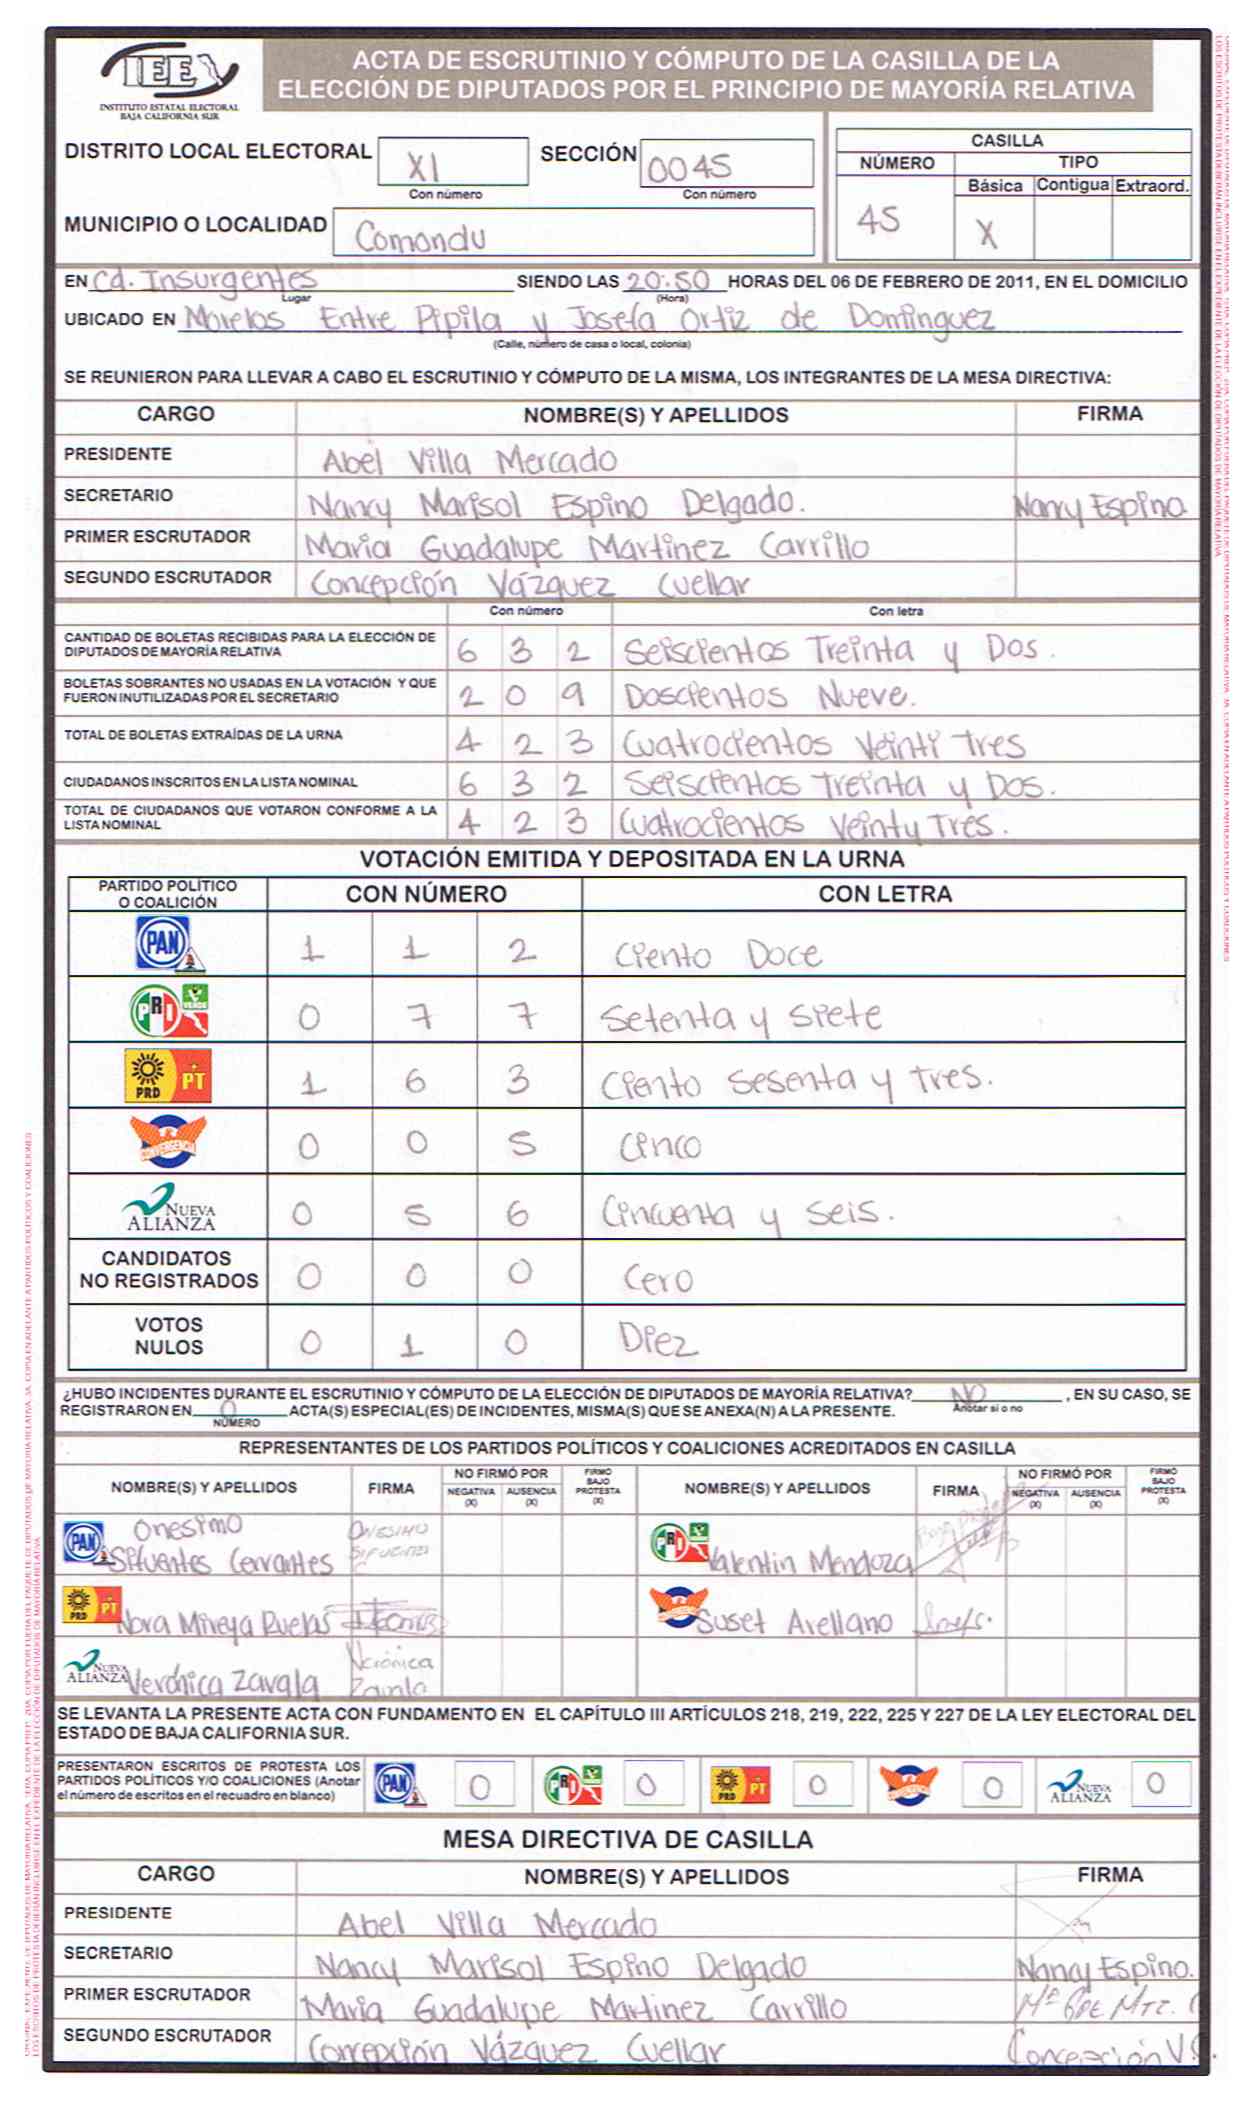 IEEX
INSTITUTO ESTATAL ELECTORAL
BAJA CALIFORNIA SUR
ACTA DE ESCRUTINIO Y CÓMPUTO DE LA CASILLA DE LA
ELECCIÓN DE DIPUTADOS POR EL PRINCIPIO DE MAYORÍA RELATIVA
DISTRITO LOCAL ELECTORAL XI SECCIÓN 0045
Con número Con número
MUNICIPIO O LOCALIDAD Comondu
CASILLA
NÚMERO TIPO
Básica Contigua Extraord.
45 X
EN Cd. Insurgentes SIENDO LAS 20:50 HORAS DEL 06 DE FEBRERO DE 2011, EN EL DOMICILIO
Lugar (Hora)
UBICADO EN Morelos Entre Pipila y Josefa Ortiz de Dominguez
(Calle, número de casa o local, colonia)
SE REUNIERON PARA LLEVAR A CABO EL ESCRUTINIO Y CÓMPUTO DE LA MISMA, LOS INTEGRANTES DE LA MESA DIRECTIVA:
CARGO NOMBRE(S) Y APELLIDOS FIRMA
PRESIDENTE Abel Villa Mercado
SECRETARIO Nancy Marisol Espino Delgado. Nancy Espino.
PRIMER ESCRUTADOR Maria Guadalupe Martinez Carrillo
SEGUNDO ESCRUTADOR Concepción Vázquez Cuellar
Con número Con letra
CANTIDAD DE BOLETAS RECIBIDAS PARA LA ELECCIÓN DE
DIPUTADOS DE MAYORÍA RELATIVA 6 3 2 Seiscientos Treinta y Dos.
BOLETAS SOBRANTES NO USADAS EN LA VOTACIÓN Y QUE
FUERON INUTILIZADAS POR EL SECRETARIO 2 0 9 Doscientos Nueve.
TOTAL DE BOLETAS EXTRAÍDAS DE LA URNA 4 2 3 Cuatrocientos Veinti Tres
CIUDADANOS INSCRITOS EN LA LISTA NOMINAL 6 3 2 Seiscientos Treinta y Dos.
TOTAL DE CIUDADANOS QUE VOTARON CONFORME A LA
LISTA NOMINAL 4 2 3 Cuatrocientos Veinty Tres.
VOTACIÓN EMITIDA Y DEPOSITADA EN LA URNA
PARTIDO POLÍTICO
O COALICIÓN CON NÚMERO CON LETRA
PAN 1 1 2 Ciento Doce
PRI VERDE 0 7 7 Setenta y Siete
PRD PT 1 6 3 Ciento Sesenta y Tres.
CONVERGENCIA 0 0 5 Cinco
NUEVA
ALIANZA 0 5 6 Cincuenta y Seis.
CANDIDATOS
NO REGISTRADOS 0 0 0 Cero
VOTOS
NULOS 0 1 0 Diez
¿HUBO INCIDENTES DURANTE EL ESCRUTINIO Y CÓMPUTO DE LA ELECCIÓN DE DIPUTADOS DE MAYORÍA RELATIVA? NO , EN SU CASO, SE
Anotar si o no
REGISTRARON EN 0 ACTA(S) ESPECIAL(ES) DE INCIDENTES, MISMA(S) QUE SE ANEXA(N) A LA PRESENTE.
NÚMERO
REPRESENTANTES DE LOS PARTIDOS POLÍTICOS Y COALICIONES ACREDITADOS EN CASILLA
NOMBRE(S) Y APELLIDOS FIRMA NO FIRMÓ POR NEGATIVA (X) AUSENCIA (X) FIRMÓ BAJO PROTESTA (X) NOMBRE(S) Y APELLIDOS FIRMA NO FIRMÓ POR NEGATIVA (X) AUSENCIA (X) FIRMÓ BAJO PROTESTA (X)
PAN Onesimo Sifuentes Cervantes ONESIMO SIFUENTES C PRI Valentin Mendoza Bajo
PRD PT Nora Mireya Ruelas Suset Arellano
NUEVA ALIANZA Verónica Zavala Verónica Zavala
SE LEVANTA LA PRESENTE ACTA CON FUNDAMENTO EN EL CAPÍTULO III ARTÍCULOS 218, 219, 222, 225 Y 227 DE LA LEY ELECTORAL DEL
ESTADO DE BAJA CALIFORNIA SUR.
PRESENTARON ESCRITOS DE PROTESTA LOS
PARTIDOS POLÍTICOS Y/O COALICIONES (Anotar
el número de escritos en el recuadro en blanco)
PAN 0 PRI 0 PRD PT 0 0 NUEVA ALIANZA 0
MESA DIRECTIVA DE CASILLA
CARGO NOMBRE(S) Y APELLIDOS FIRMA
PRESIDENTE Abel Villa Mercado
SECRETARIO Nancy Marisol Espino Delgado Nancy Espino.
PRIMER ESCRUTADOR Maria Guadalupe Martinez Carrillo Mª GPE MTZ. C
SEGUNDO ESCRUTADOR Concepción Vázquez Cuellar Concepción V.C.